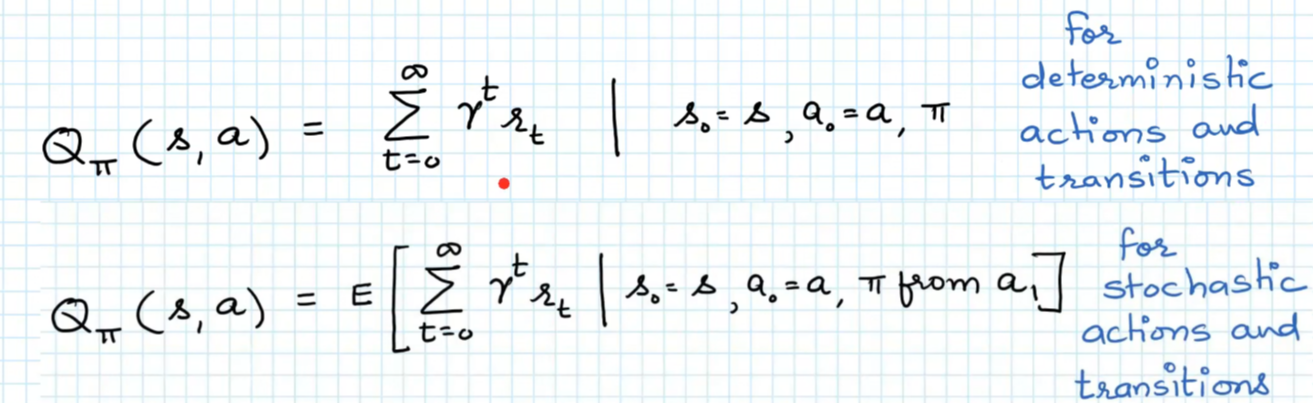 Q_π (s, a) = ∑_{t=0}^{∞} γ^t r_t | s_0 = s, a_0 = a, π
for
deterministic
actions and
transitions
Q_π (s, a) = E [ ∑_{t=0}^{∞} γ^t r_t | s_0 = s, a_0 = a, π from a_1 ]
for
stochastic
actions and
transitions